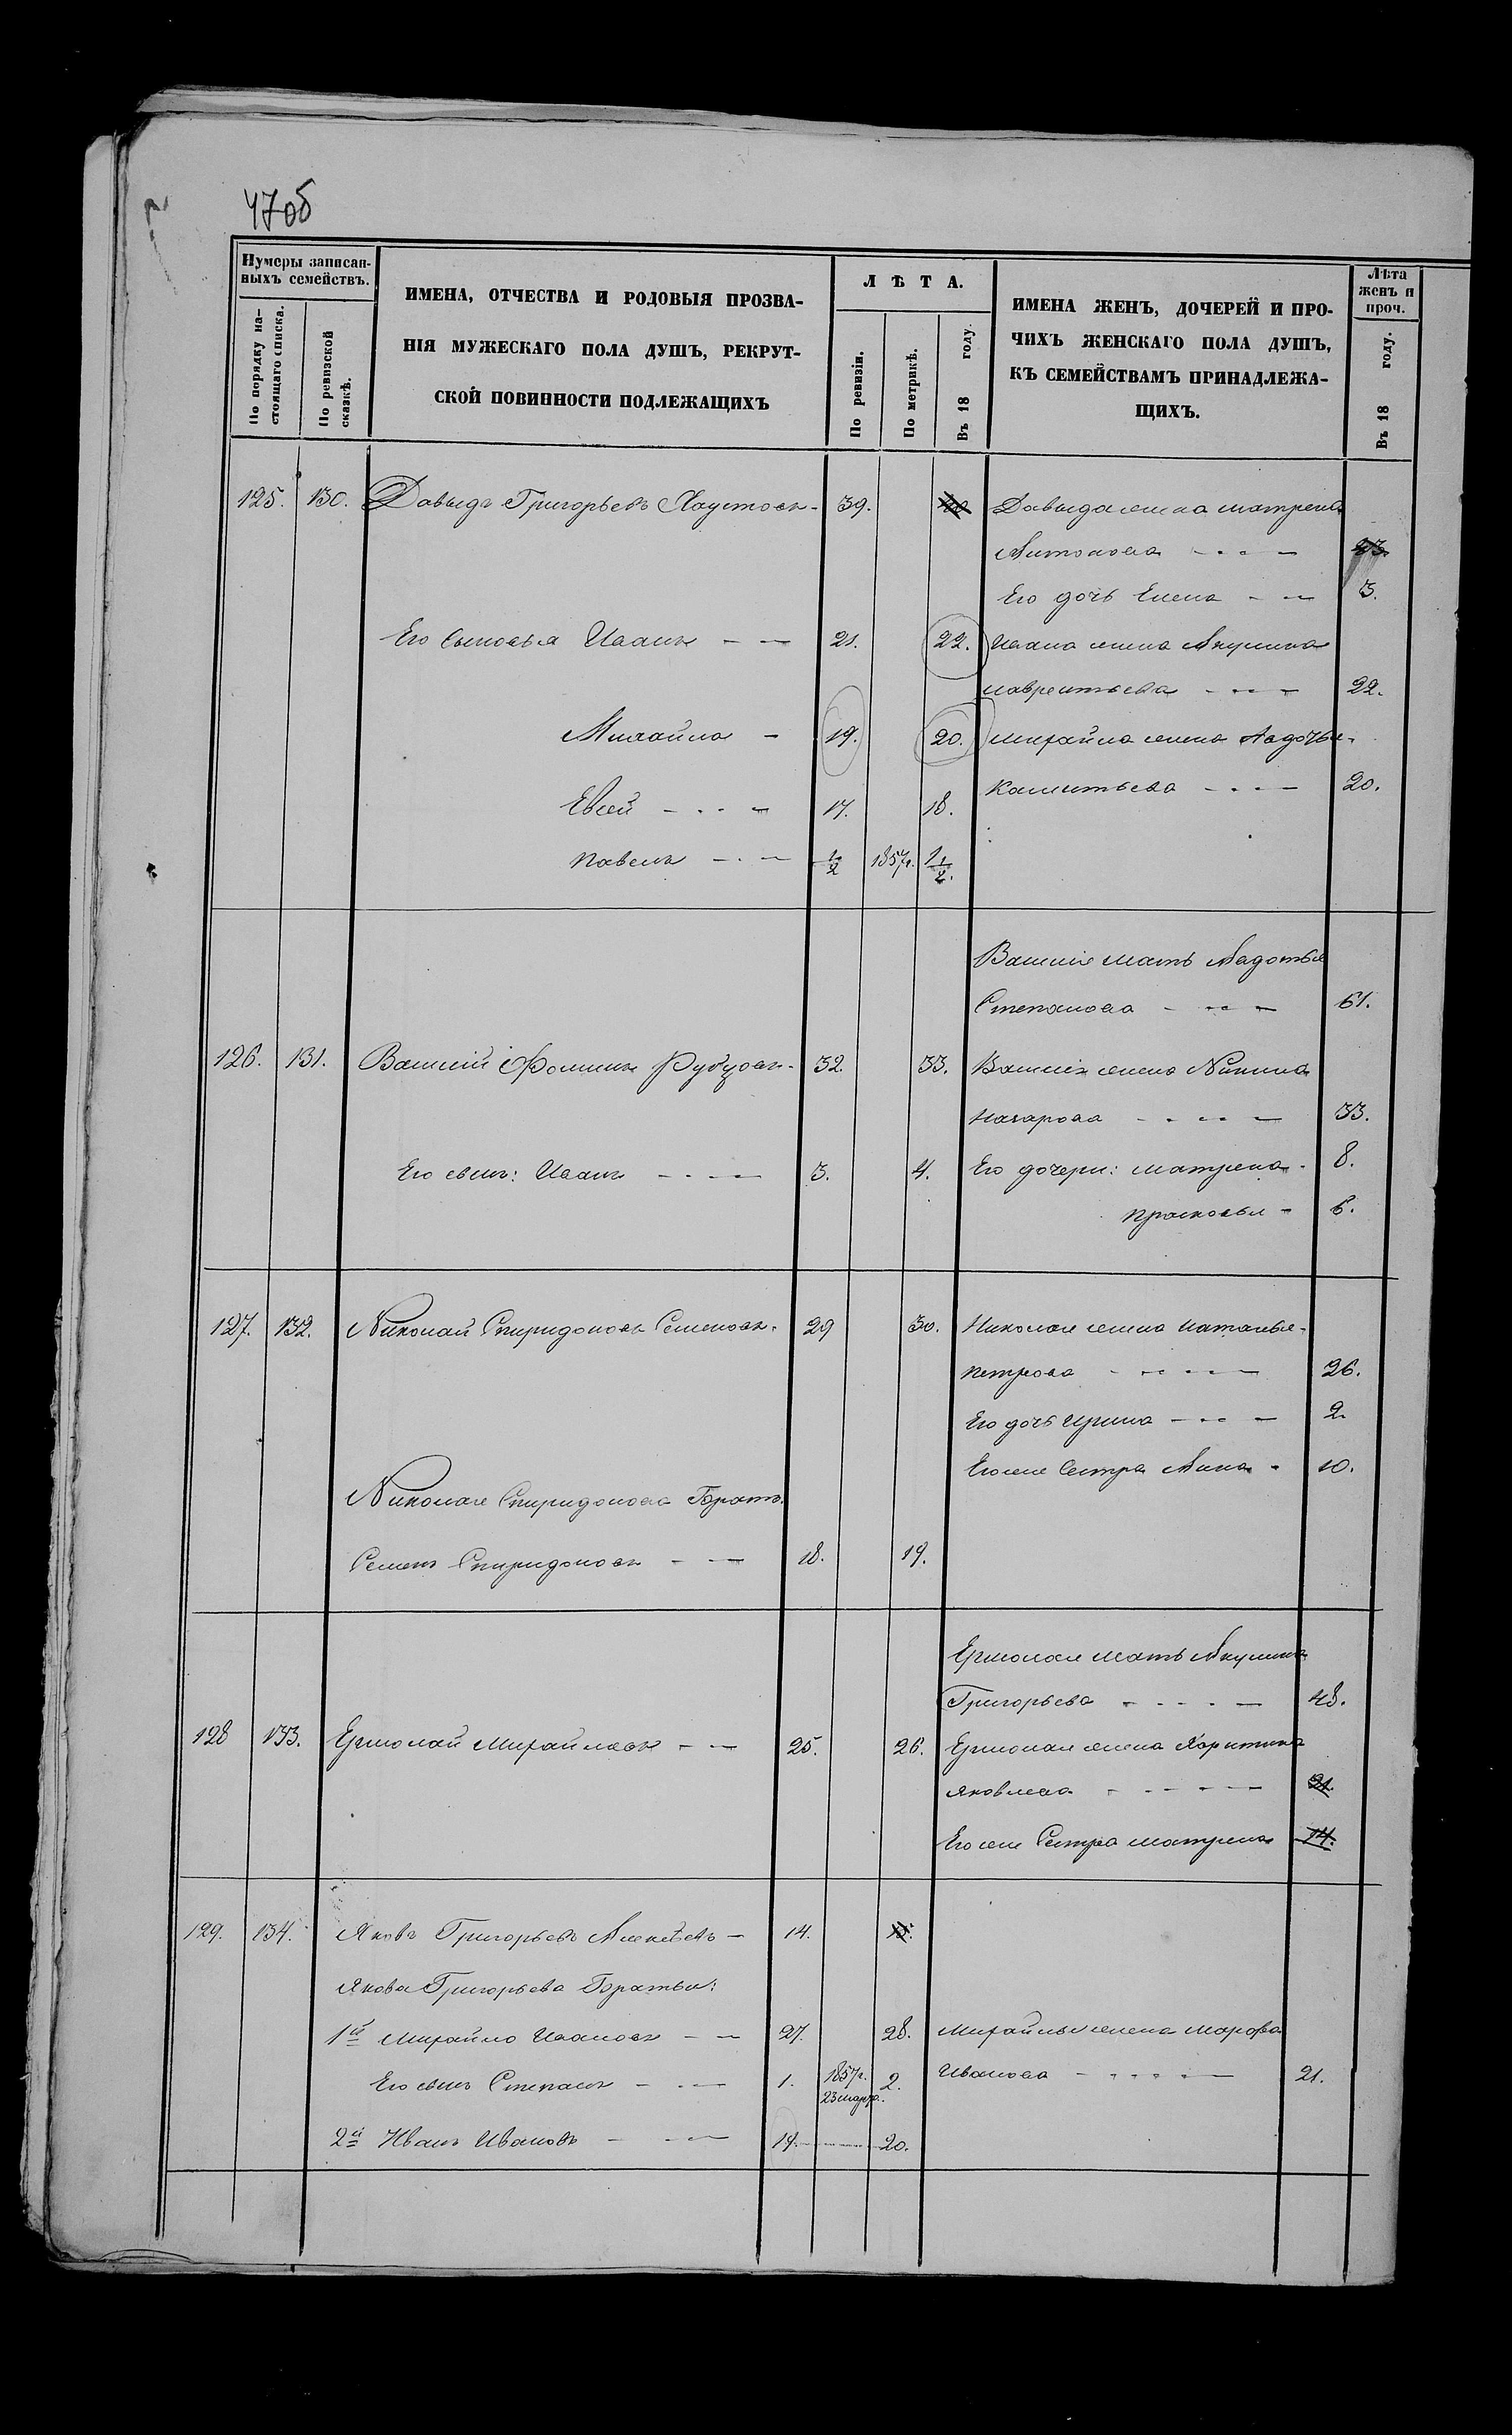 47об
Нумеры записан-
ныхъ семействъ.
По порядку на-
стоящаго списка.
По ревизской
сказкѣ.
ИМЕНА, ОТЧЕСТВА И РОДОВЫЯ ПРОЗВА-
НІЯ МУЖЕСКАГО ПОЛА ДУШЪ, РЕКРУТ-
СКОЙ ПОВИННОСТИ ПОДЛЕЖАЩИХЪ
ЛѢТА.
По ревизіи.
По метрикѣ.
Въ 18 году.
ИМЕНА ЖЕНЪ, ДОЧЕРЕЙ И ПРО-
ЧИХЪ ЖЕНСКАГО ПОЛА ДУШЪ,
КЪ СЕМЕЙСТВАМЪ ПРИНАДЛЕЖА-
ЩИХЪ.
Лѣта
женъ и
проч.
Въ 18 году.
125. 130. Давыдъ Григорьевъ Хаустовъ - 39. 40 Давыда жена Матрена
Антонова 43.
Его дочь Елена 3.
Его сыновья Иванъ 21. 22. Ивана жена Акулина
Лаврентьева 22.
Михайла 19. 20. Михайла жена Авдотья
20.
Евсей 17. 18.
Павелъ 1/2 1857г. 1 1/2.
Васил​ія мать Авдотья
Степанова 61.
126. 131. Василій Фоминъ Рубцовъ - 32. 33. Василія жена
Назарова 33.
Его сынъ: Иванъ 3. 4. Его дочери: Матрена - 8.
Прасковья - 6.
127. 132. Николай Спиридоновъ Семеновъ. 29 30. Николая жена Наталья
Петрова 26.
Его дочь Ирина 2.
Его же сестра Анна - 10.
Николая Спиридонова Братъ.
Семенъ Спиридоновъ 18. 19.
Ермолая мать Акулина
Григорьева 48.
128 133. Ермолай Михайловъ 25. 26. Ермолая жена Харитина
Яковлева 21.
Его же Сестра Матрена 14.
129. 134. Яковъ Григорьевъ Алексѣевъ - 14. 15.
Якова Григорьева Братья:
1й Михайло Ивановъ 27. 28. Михайлы жена Марфа
Его сынъ Степанъ 1. 1857г. 23 марта. 2. Иванова 21.
2й Иванъ Ивановъ 19. 20.